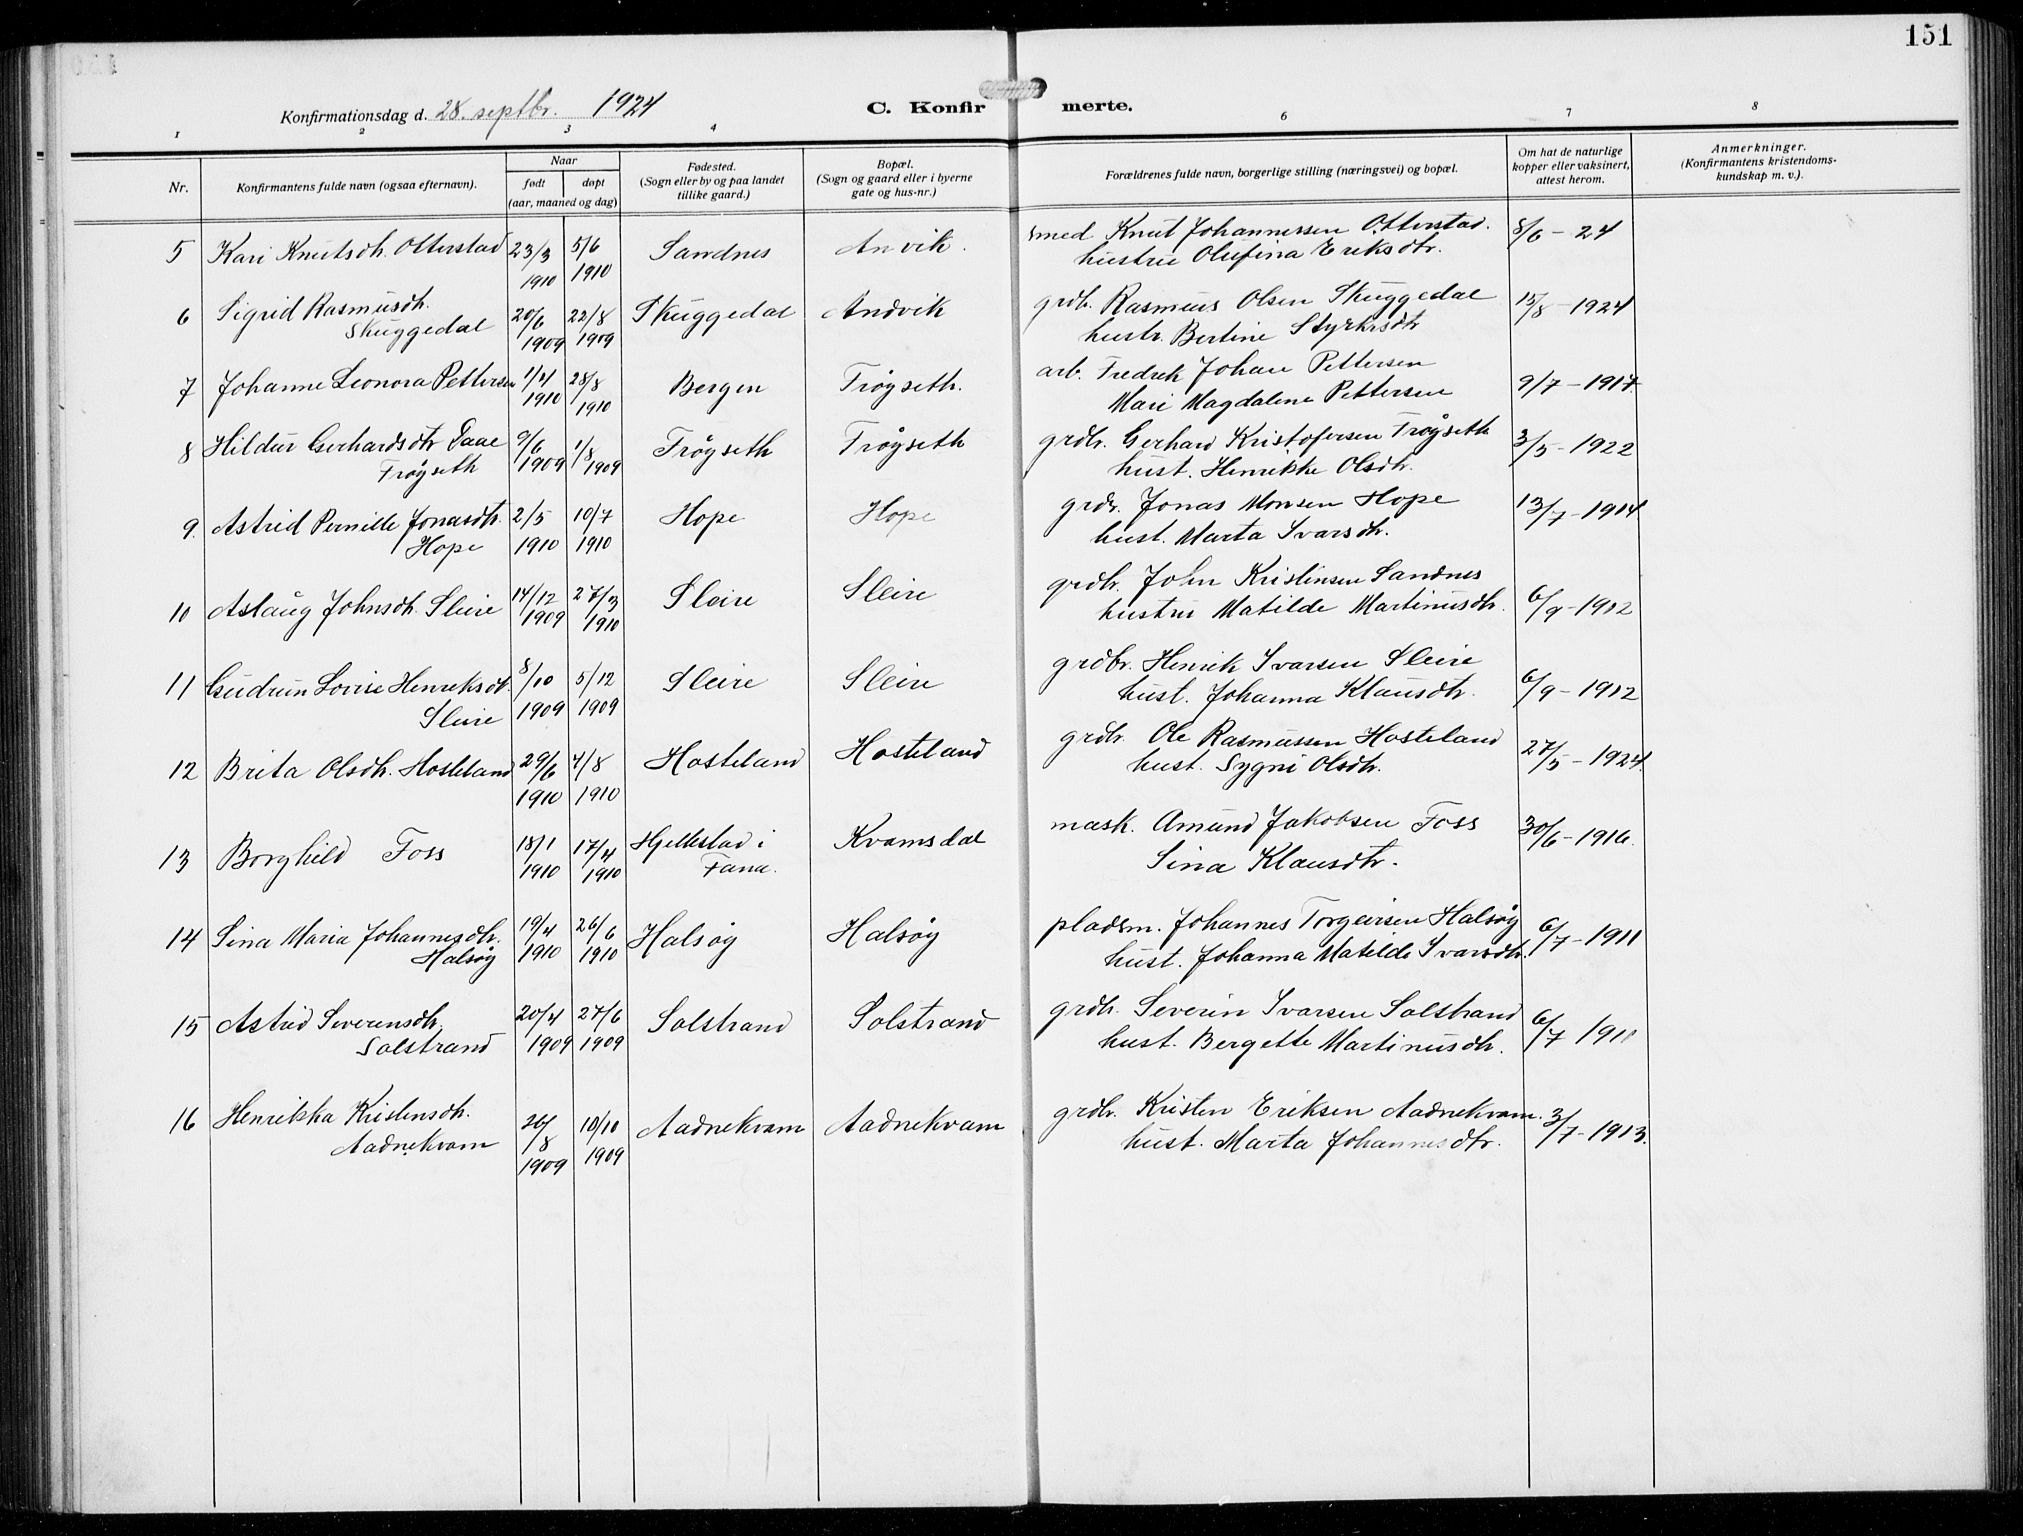 151
Konfirmationsdag d. 28. septbr. 1924
C. Konfirmerte.
1 2 3 4 6 7 8
Nr.
Konfirmantens fulde navn (ogsaa efternavn).
Naar
født døpt
(aar, maaned og dag)
Fødested.
(Sogn eller by og paa landet
tillike gaard.)
Bopæl.
(Sogn og gaard eller i byerne
gate og hus-nr.)
Forældrenes fulde navn, borgerlige stilling (næringsvei) og bopæl.
Om hat de naturlige
kopper eller vaksinert,
attest herom.
Anmerkninger.
(Konfirmantens kristendoms-
kundskap m. v.).
5 Kari Knutsdtr. Otterstad 23/3 1910 5/6 1910 Sandnes Anvik. smed Knut Johannessen Otterstad. 8/6 - 24
hustru Olufina Eriksdtr.
6 Sigrid Rasmusdtr. 20/6 1909 22/8 1909 Skuggedal Andvik grdbr. Rasmus Olsen Skuggedal 15/8 - 1924
Skuggedal hustr. Bertine Styrksdtr
7 Johanne Leonora Pettersen 1/4 1910 28/8 1910 Bergen Trøyseth. arb. Fredrek Johan Pettersen 9/7 - 1917
Mari Magdalene Pettersen
8 Hildur Gerhardsdtr Taae 9/6 1909 1/8 1909 Trøyseth Trøyseth grdbr. Gerhard Kristofersen Trøyseth 3/5 - 1922
Trøyseth hust. Henrikke Olsdtr.
9. Astrid Pernille Jonasdtr. 2/5 1910 10/7 1910 Hope Hope grdr. Jonas Monsen Hope 13/7 - 1914
Hope hust. Marta Ivarsdtr.
10 Aslaug Johnsdtr. Sleire 14/12 1909 27/3 1910 Sleire Sleire grdbr. John Kristinsen Sandnes 6/9 - 1912
hustru Matilde Martinusdtr.
11 Gudrun Lovise Henriksdt. 8/10 1909 5/12 1909 Sleire Sleire grdbr. Henrik Ivarsen Sleire 6/9 - 1912
Sleire hust. Johanna Klausdtr.
12 Brita Olsdtr. Hosteland 29/6 1910 4/8 1910 Hosteland Hosteland grdbr. Ole Rasmussen Hosteland 27/5 - 1924.
hust. Sygni Olsdtr.
13 Borghild Foss 18/1 1910 17/4 1910 Hjellestad i Kvamsdal mask. Amund Jakobsen Foss 30/6 - 1916.
Fana. Sina Klausdtr.
14 Sina Maria Johannesdtr. 19/4 1910 26/6 1910 Halsøy Halsøy pladsm. Johannes Torgeirsen Halsøy 6/7 - 1911
Halsøy hust. Johanna Matilde Ivarsdtr.
15 Astrid Severinsdtr. 20/4 1909 27/6 1909 Solstrand Solstrand grdbr. Severin Ivarsen Solstrand 6/7 1911
Solstrand hust. Bergette Martinusdtr.
16 Henrikka Kristensdtr. 26/8 1909 10/10 1909 Aadnekvam Aadnekvam grdbr. Kristen Eriksen Aadnekvam. 3/7 - 1913.
Aadnekvam hust. Marta Johannesdtr.